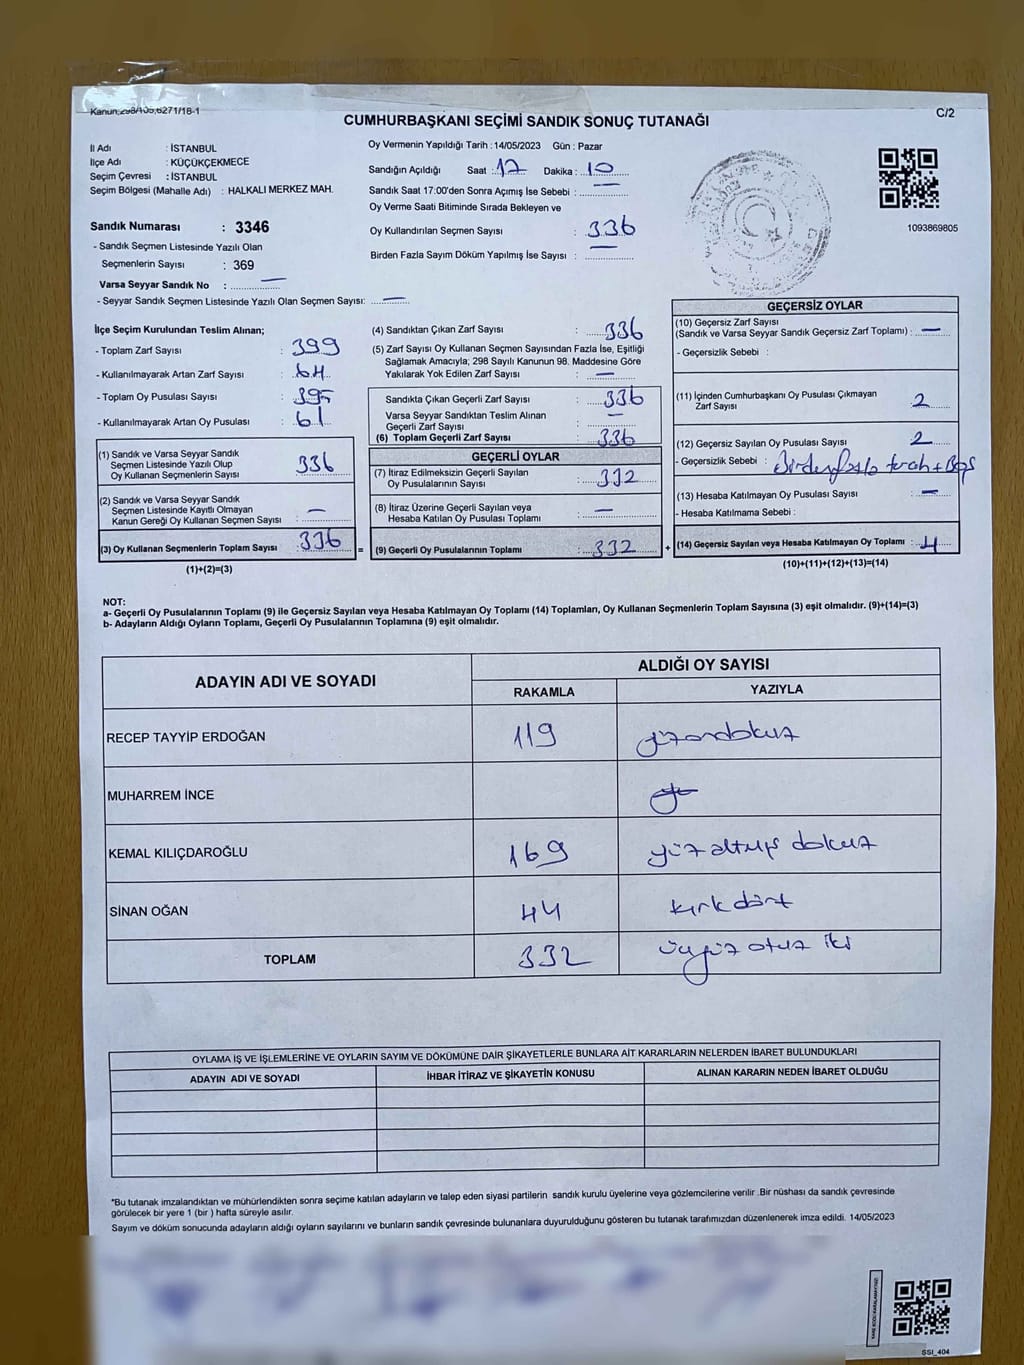 Kanun:298/105,6271/18-1
C/2
CUMHURBAŞKANI SEÇİMİ SANDIK SONUÇ TUTANAĞI
İl Adı : İSTANBUL
İlçe Adı : KÜÇÜKÇEKMECE
Seçim Çevresi : İSTANBUL
Seçim Bölgesi (Mahalle Adı) : HALKALI MERKEZ MAH.
Sandık Numarası : 3346
- Sandık Seçmen Listesinde Yazılı Olan
Seçmenlerin Sayısı : 369
Varsa Seyyar Sandık No : —
- Seyyar Sandık Seçmen Listesinde Yazılı Olan Seçmen Sayısı: —
Oy Vermenin Yapıldığı Tarih : 14/05/2023 Gün : Pazar
Sandığın Açıldığı Saat : 17 Dakika : 10
Sandık Saat 17:00'den Sonra Açımış İse Sebebi : —
Oy Verme Saati Bitiminde Sırada Bekleyen ve
Oy Kullandırılan Seçmen Sayısı : 336
Birden Fazla Sayım Döküm Yapılmış İse Sayısı : —
1093869805
İlçe Seçim Kurulundan Teslim Alınan;
- Toplam Zarf Sayısı : 399
- Kullanılmayarak Artan Zarf Sayısı : 64
- Toplam Oy Pusulası Sayısı : 395
- Kullanılmayarak Artan Oy Pusulası : 61
(1) Sandık ve Varsa Seyyar Sandık
Seçmen Listesinde Yazılı Olup
Oy Kullanan Seçmenlerin Sayısı 336
(2) Sandık ve Varsa Seyyar Sandık
Seçmen Listesinde Kayıtlı Olmayan
Kanun Gereği Oy Kullanan Seçmen Sayısı : —
(3) Oy Kullanan Seçmenlerin Toplam Sayısı : 336
(1)+(2)=(3)
=
(4) Sandıktan Çıkan Zarf Sayısı : 336
(5) Zarf Sayısı Oy Kullanan Seçmen Sayısından Fazla İse, Eşitliği
Sağlamak Amacıyla; 298 Sayılı Kanunun 98. Maddesine Göre
Yakılarak Yok Edilen Zarf Sayısı : —
Sandıkta Çıkan Geçerli Zarf Sayısı : 336
Varsa Seyyar Sandıktan Teslim Alınan
Geçerli Zarf Sayısı : —
(6) Toplam Geçerli Zarf Sayısı : 336
GEÇERLİ OYLAR
(7) İtiraz Edilmeksizin Geçerli Sayılan
Oy Pusulalarının Sayısı : 332
(8) İtiraz Üzerine Geçerli Sayılan veya
Hesaba Katılan Oy Pusulası Toplamı : —
(9) Geçerli Oy Pusulalarının Toplamı : 332
+
GEÇERSİZ OYLAR
(10) Geçersiz Zarf Sayısı
(Sandık ve Varsa Seyyar Sandık Geçersiz Zarf Toplamı) : —
- Geçersizlik Sebebi :
(11) İçinden Cumhurbaşkanı Oy Pusulası Çıkmayan
Zarf Sayısı : 2
(12) Geçersiz Sayılan Oy Pusulası Sayısı : 2
- Geçersizlik Sebebi : Birden fazla tercih + Boş
(13) Hesaba Katılmayan Oy Pusulası Sayısı : —
- Hesaba Katılmama Sebebi :
(14) Geçersiz Sayılan veya Hesaba Katılmayan Oy Toplamı : 4
(10)+(11)+(12)+(13)=(14)
NOT:
a- Geçerli Oy Pusulalarının Toplamı (9) ile Geçersiz Sayılan veya Hesaba Katılmayan Oy Toplamı (14) Toplamları, Oy Kullanan Seçmenlerin Toplam Sayısına (3) eşit olmalıdır. (9)+(14)=(3)
b- Adayların Aldığı Oyların Toplamı, Geçerli Oy Pusulalarının Toplamına (9) eşit olmalıdır.
ADAYIN ADI VE SOYADI ALDIĞI OY SAYISI
RAKAMLA YAZIYLA
RECEP TAYYİP ERDOĞAN 119 yüzondokuz
MUHARREM İNCE
KEMAL KILIÇDAROĞLU 169 yüz altmış dokuz
SİNAN OĞAN 44 kırk dört
TOPLAM 332 üçyüz otuz iki
OYLAMA İŞ VE İŞLEMLERİNE VE OYLARIN SAYIM VE DÖKÜMÜNE DAİR ŞİKAYETLERLE BUNLARA AİT KARARLARIN NELERDEN İBARET BULUNDUKLARI
ADAYIN ADI VE SOYADI İHBAR İTİRAZ VE ŞİKAYETİN KONUSU ALINAN KARARIN NEDEN İBARET OLDUĞU
*Bu tutanak imzalandıktan ve mühürlendikten sonra seçime katılan adayların ve talep eden siyasi partilerin sandık kurulu üyelerine veya gözlemcilerine verilir .Bir nüshası da sandık çevresinde
görülecek bir yere 1 (bir ) hafta süreyle asılır.
Sayım ve döküm sonucunda adayların aldığı oyların sayılarını ve bunların sandık çevresinde bulunanlara duyurulduğunu gösteren bu tutanak tarafımızdan düzenlenerek imza edildi. 14/05/2023
SSI_404